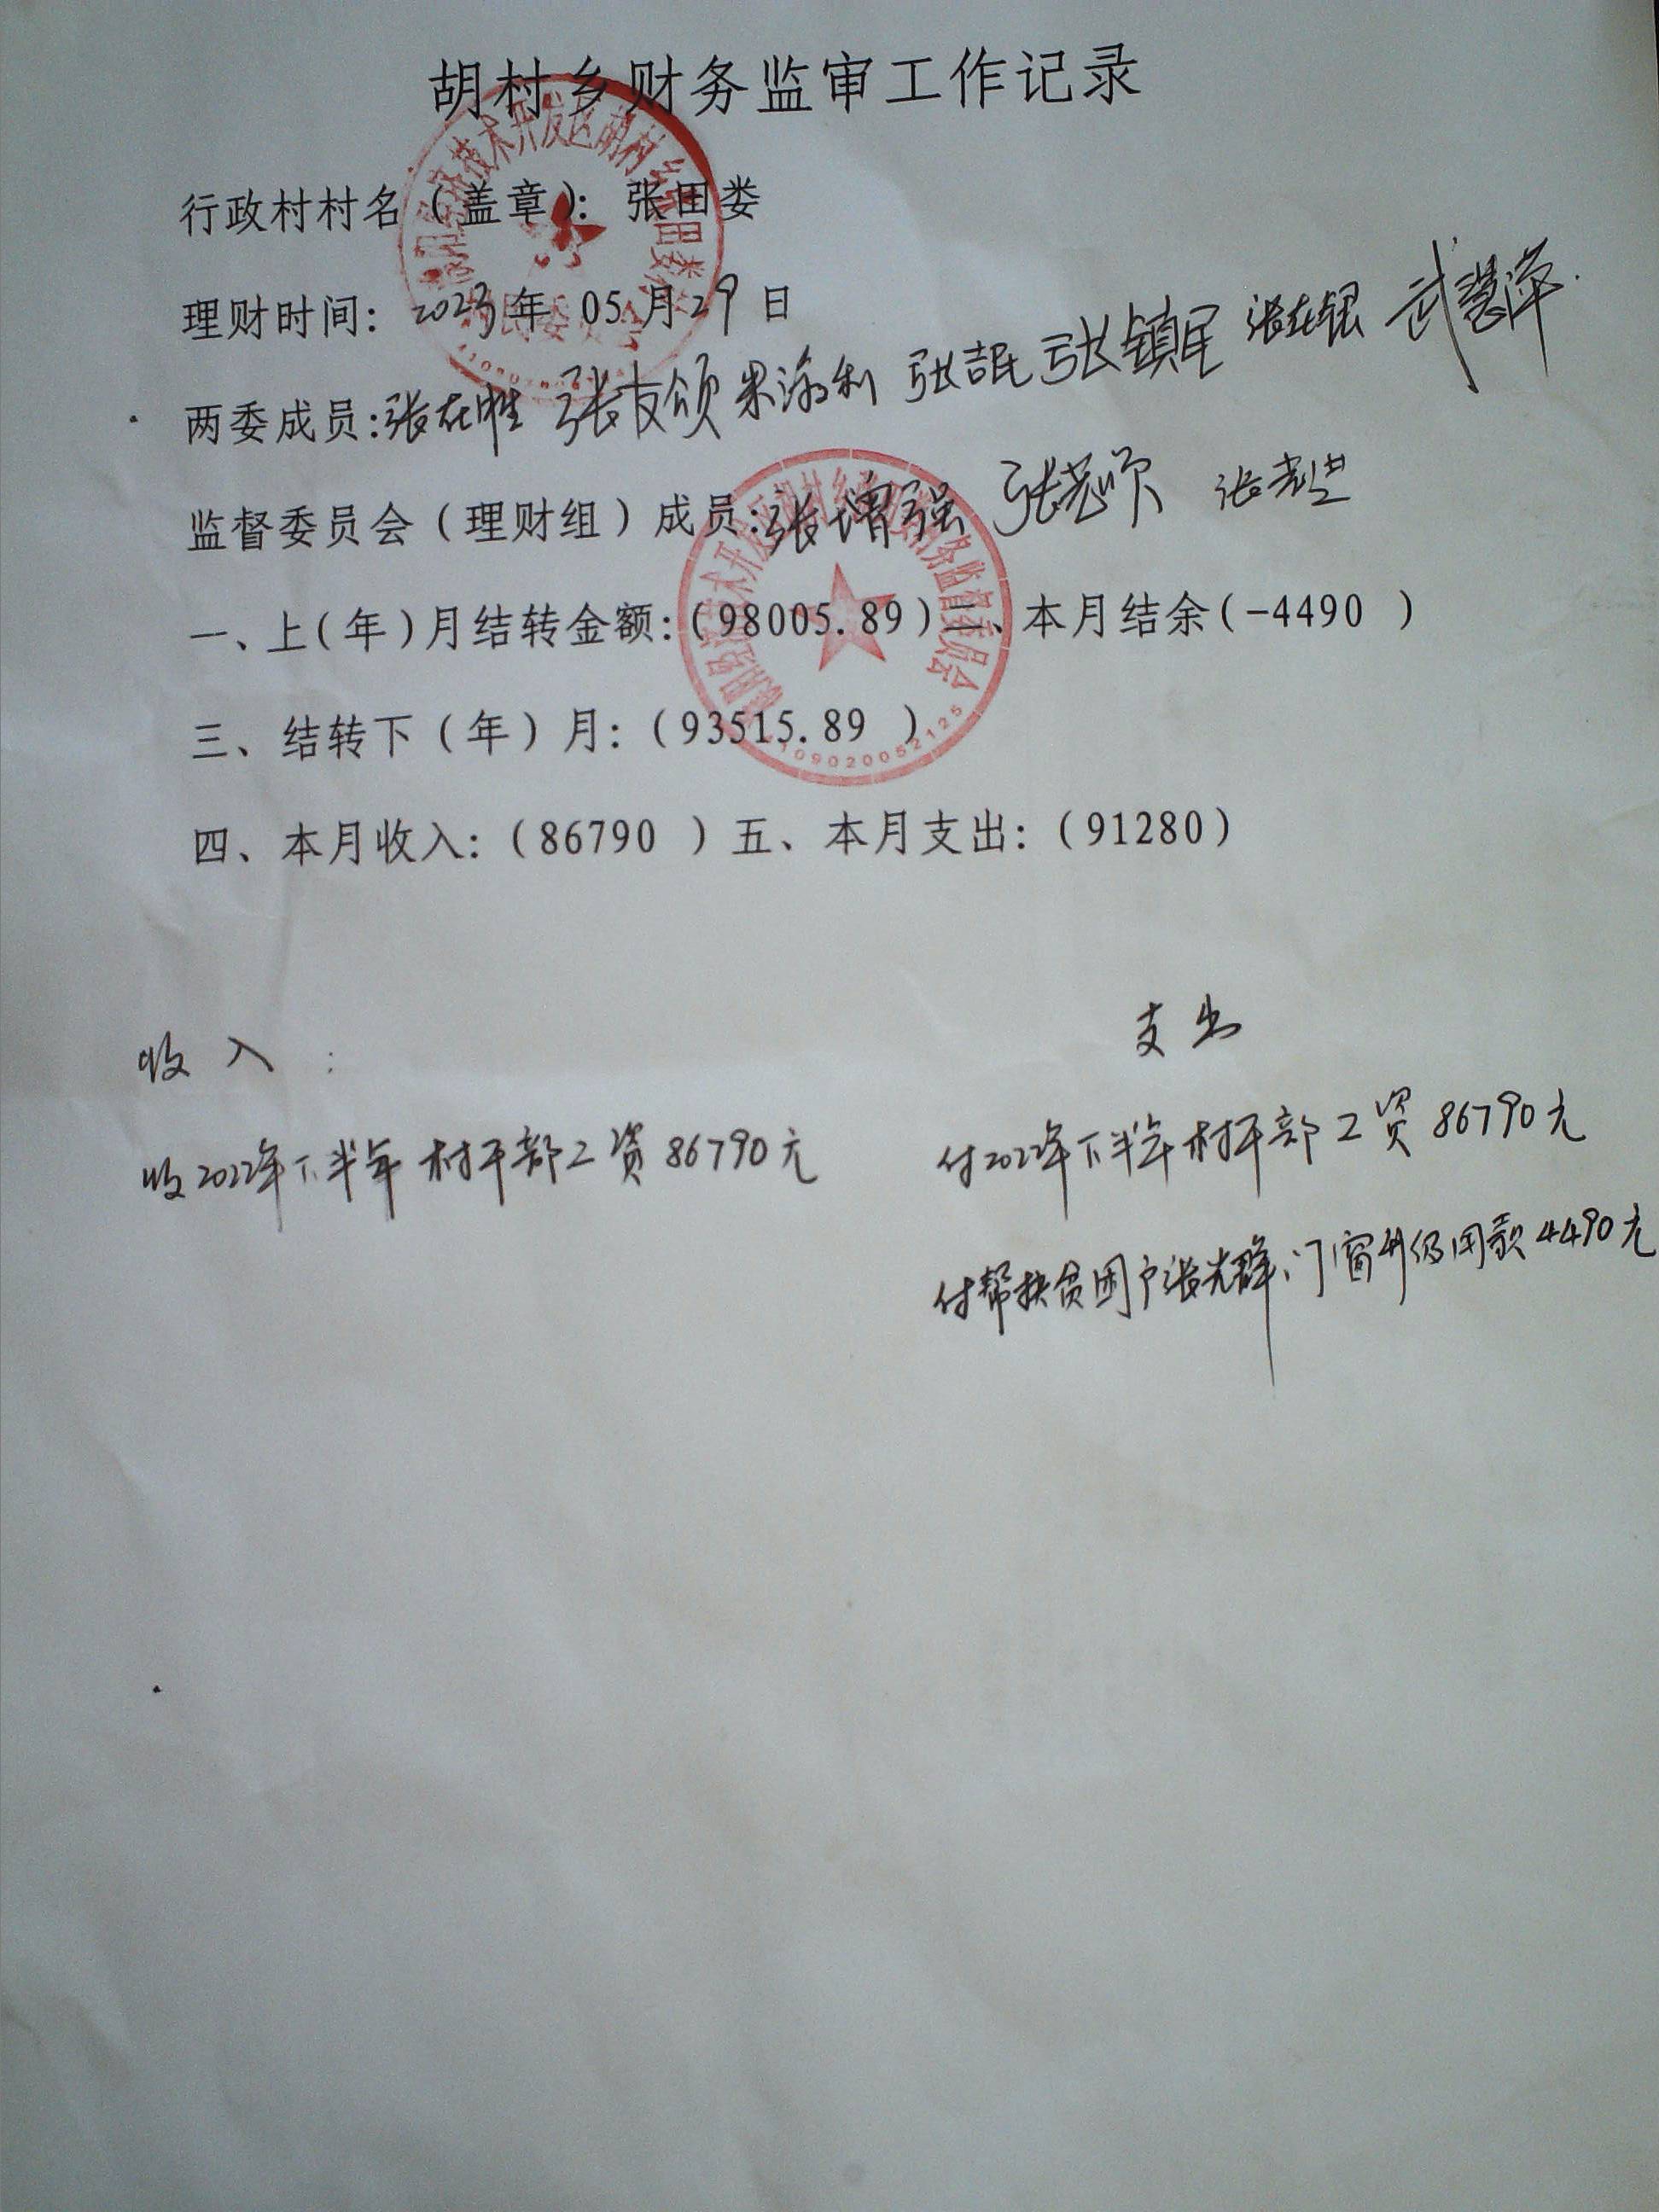 胡村乡财务监审工作记录
行政村村名（盖章）：张田娄
理财时间：2023年 05月29日
两委成员：张在胜 张友颂 张镇民 张在银 武慧萍
监督委员会（理财组）成员：张增强
一、上（年）月结转金额：（98005.89）二、本月结余（-4490 ）
三、结转下（年）月：（93515.89 ）
109020052125
四、本月收入：（86790 ）五、本月支出：（91280）
收入：
支出
收2022年下半年村干部工资86790元
付2022年下半年村干部工资86790元
付帮扶贫困户张光辉门窗 款4490元